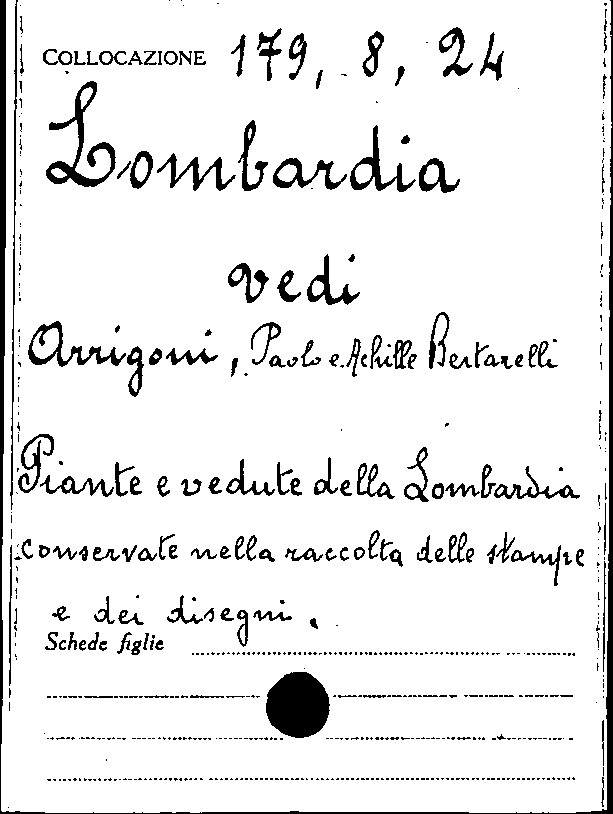 COLLOCAZIONE 179, 8, 24
Lombardia
vedi
Arrigoni, Paolo e Achille Bertarelli
Piante e vedute della Lombardia
conservate nella raccolta delle stampe
e dei disegni.
Schede figlie